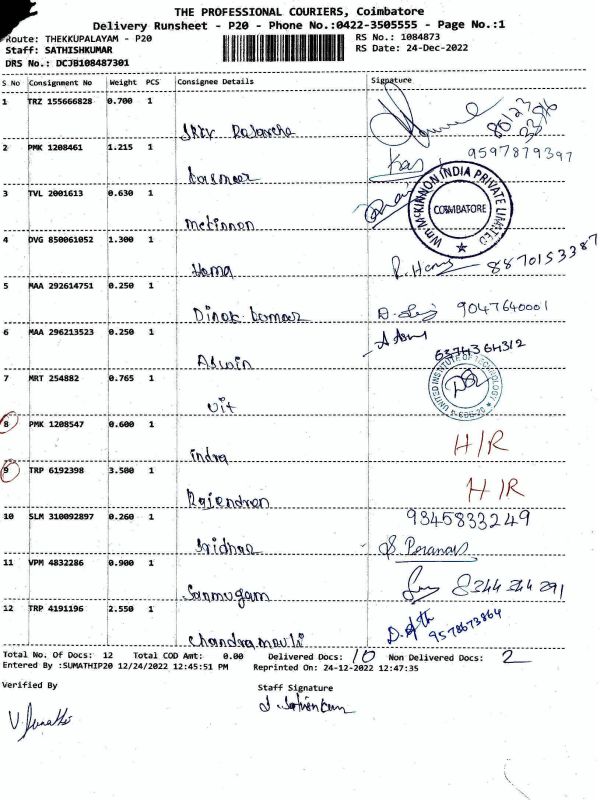 THE PROFESSIONAL COURIERS, Coimbatore
Delivery Runsheet - P20 - Phone No.:0422-3505555 - Page No.:1
Route: THEKKUPALAYAM - P20
RS No.: 1084873
Staff: SATHISHKUMAR
RS Date: 24-Dec-2022
DRS No.: DCJB108487301
S No Consignment No Weight PCS Consignee Details Signature
1 TRZ 155666828 0.700 1
2 PMK 1208461 1.215 1 9597879397
3 TVL 2001613 0.630 1 Mckinnon
Wm McKINNON INDIA PRIVATE LIMITED
COIMBATORE
4 DVG 850061052 1.300 1 Hama R. Hema 8870153387
5 MAA 292614751 0.250 1 Dinak kumar 9047640001
6 MAA 296213523 0.250 1 Aswin
6374364312
7 MRT 254882 0.765 1 Uit
UNITED INSTITUTE OF TECHNOLOGY
8 PMK 1208547 0.600 1 indra H/R
9 TRP 6192398 3.500 1 Rajendran H/R
10 SLM 310092897 0.260 1 Sridhar 9345833249
11 VPM 4832286 0.900 1 Sanmugam 8344344291
12 TRP 4191196 2.550 1 Chandramouli 9578673864
Total No. Of Docs: 12 Total COD Amt: 0.00 Delivered Docs: 10 Non Delivered Docs: 2
Entered By :SUMATHIP20 12/24/2022 12:45:51 PM Reprinted On: 24-12-2022 12:47:35
Verified By
Staff Signature